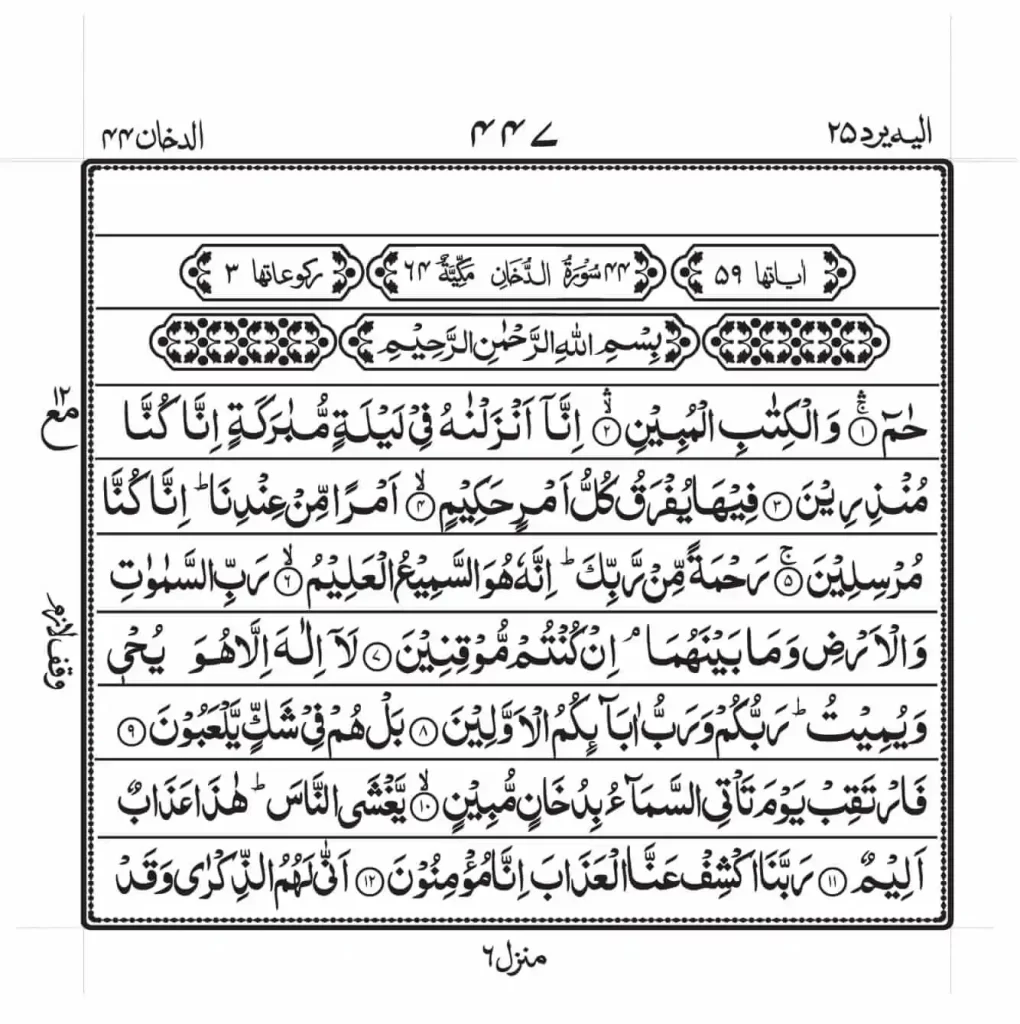 الیہ یرد ۲۵
۴۴۷
الدخان ۴۴
اٰیاتہا ۵۹
۴۴ سُوْرَۃُ الدُّخَانِ مَکِّیَّۃٌ ۶۴
رکوعاتہا ۳
بِسْمِ اللّٰہِ الرَّحْمٰنِ الرَّحِیْمِ
حٰمٓ ۚۛ﴿۱﴾ وَالْکِتٰبِ الْمُبِیْنِ ۙۛ﴿۲﴾ اِنَّاۤ اَنْزَلْنٰہُ فِیْ لَیْلَۃٍ مُّبٰرَکَۃٍ اِنَّا کُنَّا
مُنْذِرِیْنَ ﴿۳﴾ فِیْہَا یُفْرَقُ کُلُّ اَمْرٍ حَکِیْمٍ ۙ﴿۴﴾ اَمْرًا مِّنْ عِنْدِنَا ؕ اِنَّا کُنَّا
مُرْسِلِیْنَ ۚ﴿۵﴾ رَحْمَۃً مِّنْ رَّبِّکَ ؕ اِنَّہٗ ہُوَ السَّمِیْعُ الْعَلِیْمُ ۙ﴿۶﴾ رَبِّ السَّمٰوٰتِ
وَالْاَرْضِ وَمَا بَیْنَہُمَا ۘ اِنْ کُنْتُمْ مُّوْقِنِیْنَ ﴿۷﴾ لَاۤ اِلٰہَ اِلَّا ہُوَ یُحْیٖ
وَیُمِیْتُ ؕ رَبُّکُمْ وَرَبُّ اٰبَآئِکُمُ الْاَوَّلِیْنَ ﴿۸﴾ بَلْ ہُمْ فِیْ شَکٍّ یَّلْعَبُوْنَ ﴿۹﴾
فَارْتَقِبْ یَوْمَ تَاْتِی السَّمَآءُ بِدُخَانٍ مُّبِیْنٍ ۙ﴿۱۰﴾ یَّغْشَی النَّاسَ ؕ ہٰذَا عَذَابٌ
اَلِیْمٌ ﴿۱۱﴾ رَبَّنَا اکْشِفْ عَنَّا الْعَذَابَ اِنَّا مُؤْمِنُوْنَ ﴿۱۲﴾ اَنّٰی لَہُمُ الذِّکْرٰی وَقَدْ
۱۲
مع
وقف لازم
منزل ۶